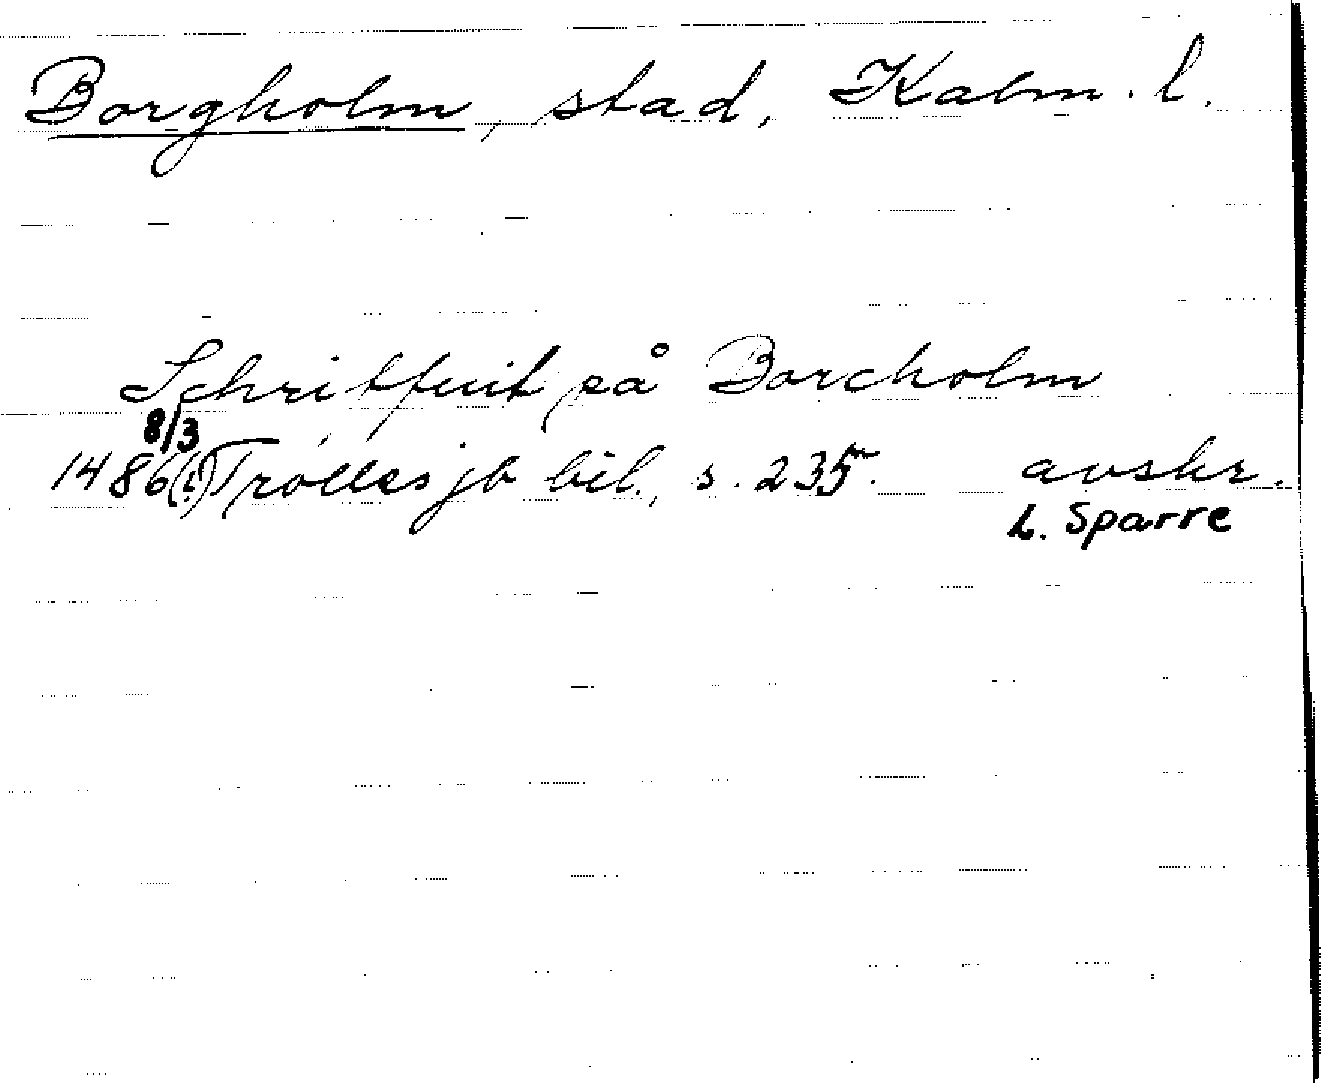 Borgholm, stad, Kalm. l.
Schriffuit på Borcholm
8/3
1486 (!) Trolles jb bil., s. 235. avskr.
L. Sparre